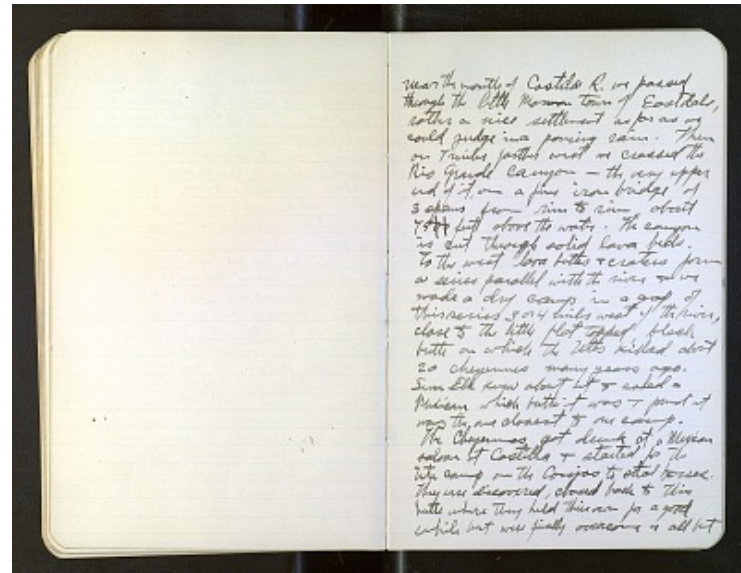 near the mouth of Costilla R. we passed
through the little Mormon town of Eastdale,
rather a nice settlement as far as we
could judge in a pouring rain. Then
on 7 miles farther west we crossed the
Rio Grande Canyon — the very upper
end of it, on a fine iron bridge of
3 spans from rim to rim about
feet above the water. The canyon
is cut through solid lava beds.
To the west lava buttes & craters form
a series parallel with the river & we
made a dry camp in a gap of
this series 3 or 4 miles west of the river,
close to the little flat topped black
butte on which the Utes killed about
20 Cheyennes many years ago.
Sun Elk knew about it & asked a
Mexican which butte it was & found it
was the one closest to our camp.
The Cheyennes got drunk at a Mexican
saloon at Costilla & started for the
Ute camp on the Conejos to steal horses.
They were discovered, chased back to this
butte where they held their own for a good
while but were finally overcome & all but